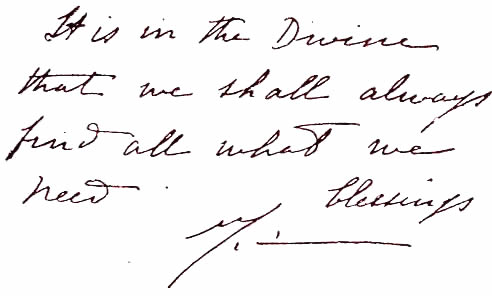 It is in the Divine
that we shall always
find all what we
need
blessings